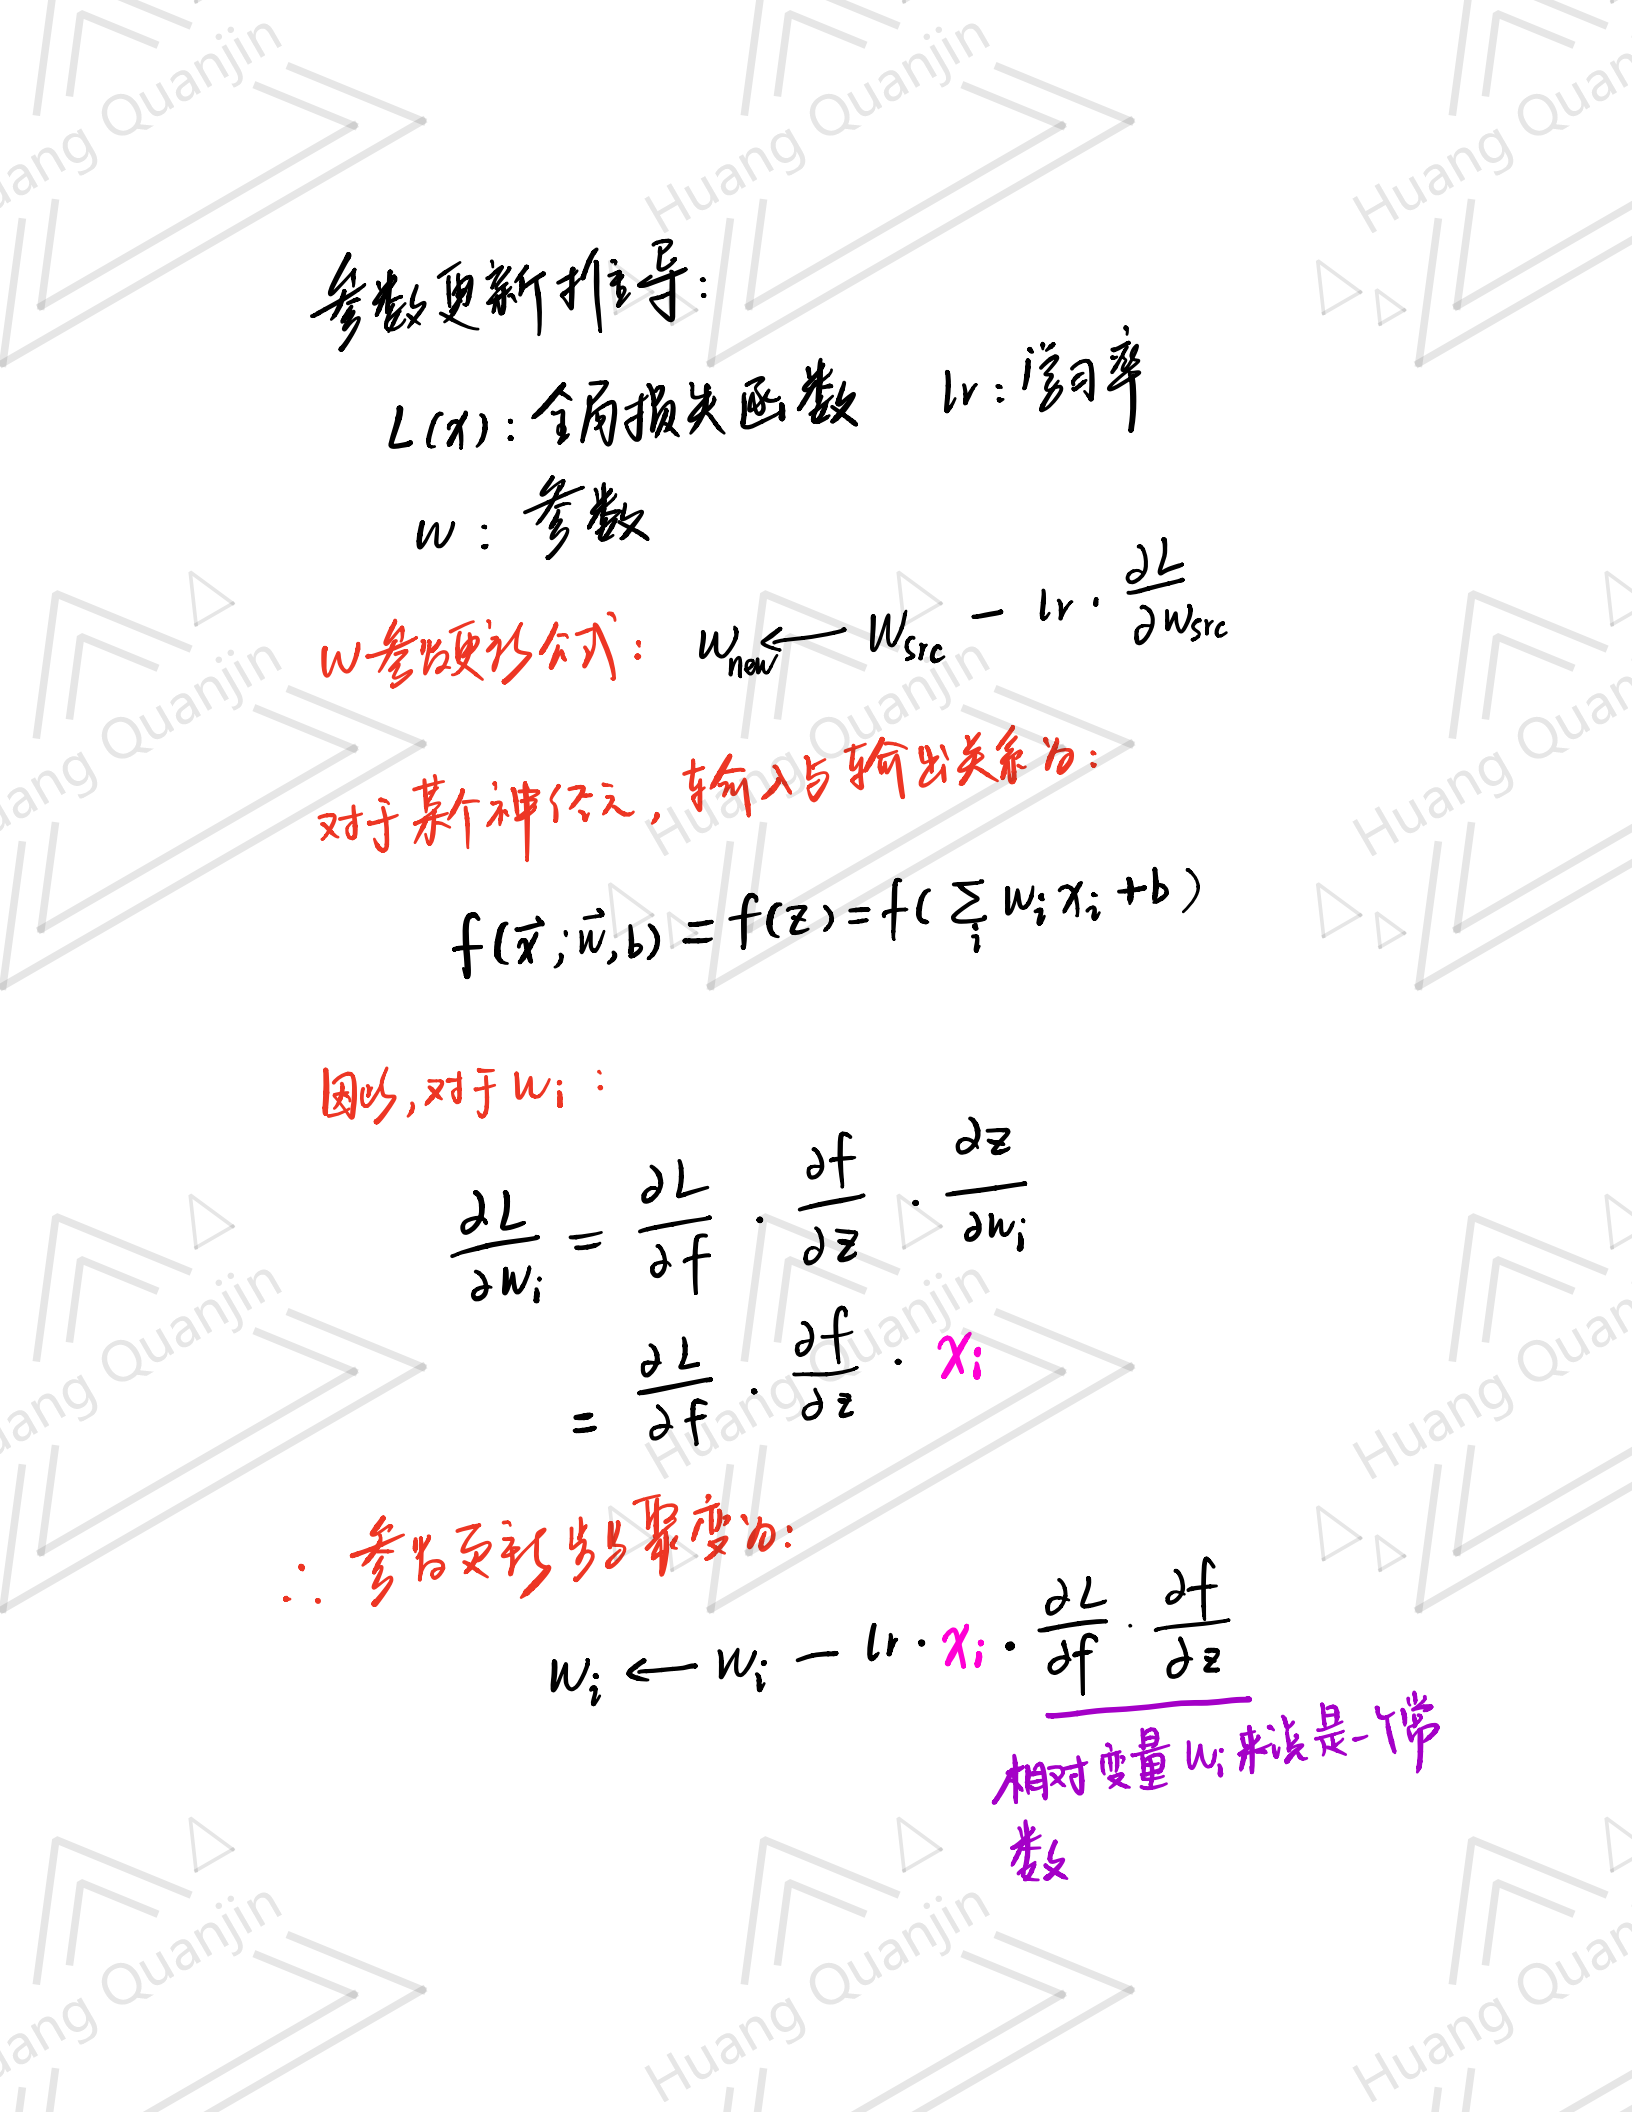 参数更新推导:
L(x): 全局损失函数 lr: 学习率
w: 参数
w参数更新公式: w_new ← w_src − lr · ∂L/∂w_src
对于某个神经元, 输入与输出关系为:
f(x⃗; w⃗, b) = f(z) = f(∑_i w_i x_i + b)
因此, 对于 w_i:
∂L/∂w_i = ∂L/∂f · ∂f/∂z · ∂z/∂w_i
= ∂L/∂f · ∂f/∂z · x_i
∴ 参数更新步骤变为:
w_i ← w_i − lr · x_i · ∂L/∂f · ∂f/∂z
相对变量 w_i 来说是一个常
数
Huang Quanjin